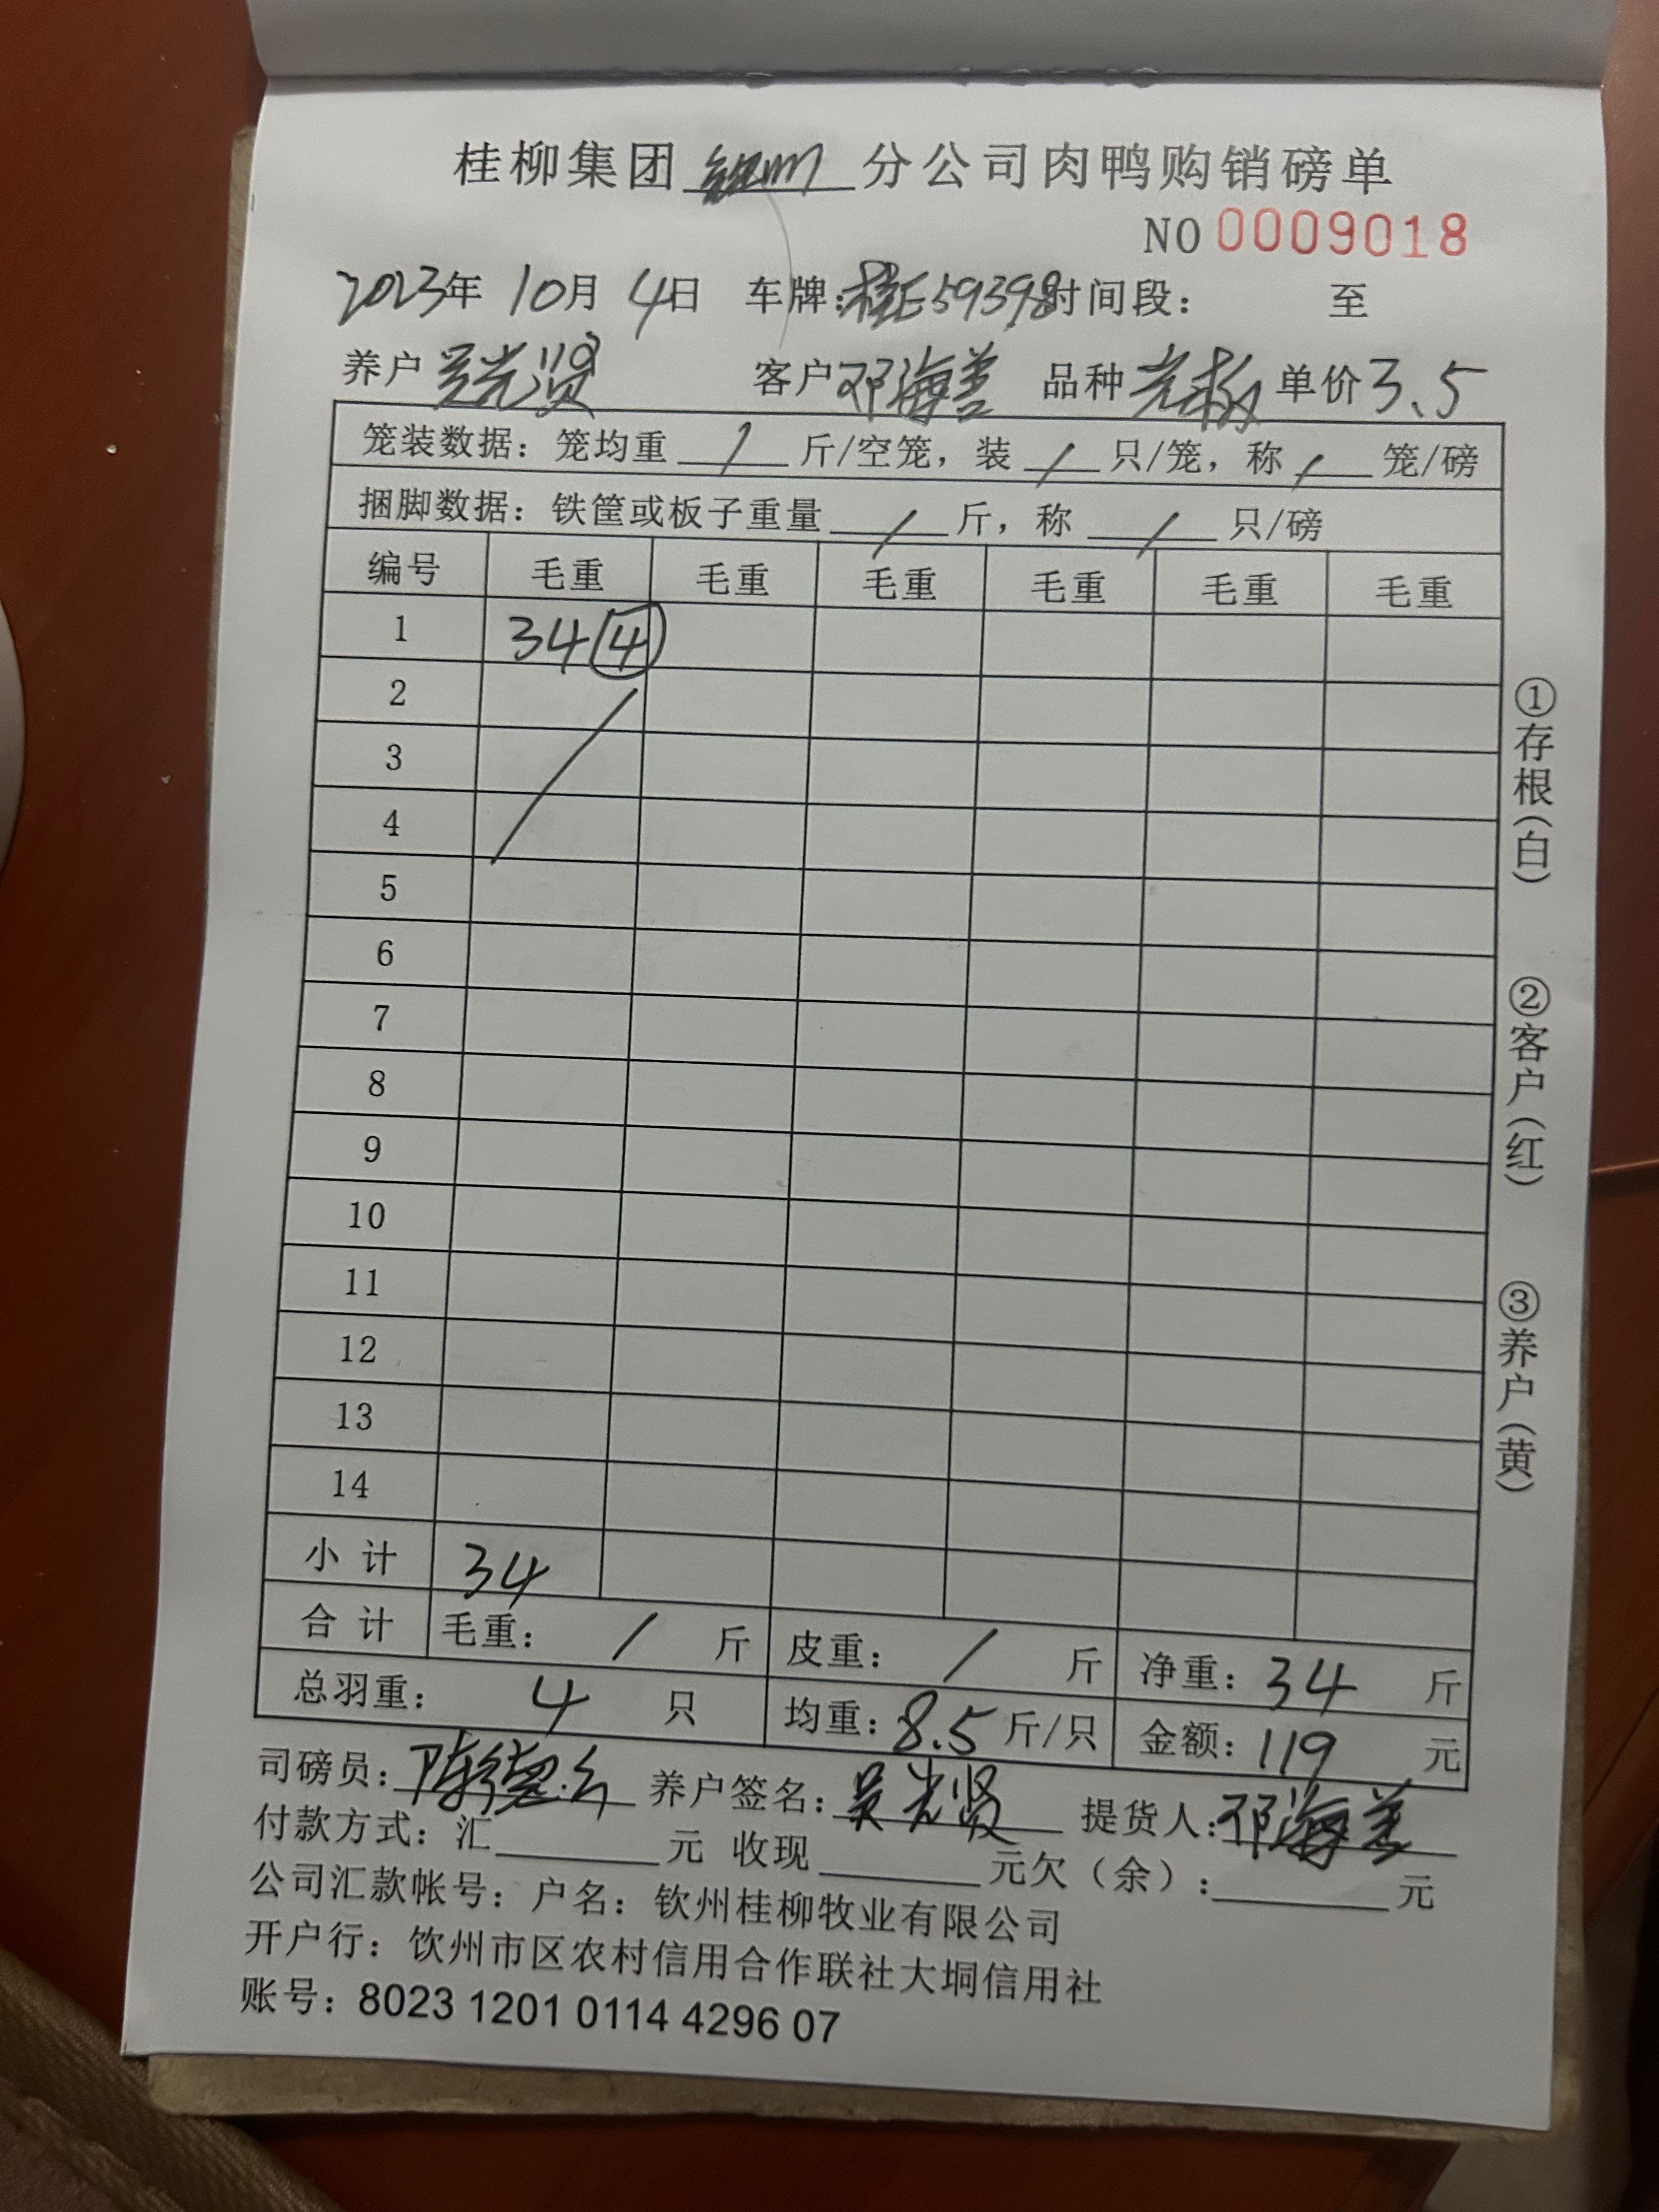 桂柳集团 钦州 分公司肉鸭购销磅单
NO 0009018
2023年 10月 4日 车牌：桂E59398 时间段： 至
养户 吴光贤 客户 邓海善 品种 单价 3.5
笼装数据：笼均重 / 斤/空笼，装 / 只/笼，称 / 笼/磅
捆脚数据：铁筐或板子重量 / 斤，称 / 只/磅
编号 毛重 毛重 毛重 毛重 毛重 毛重
1 34 ④
2
3
4
5
6
7
8
9
10
11
12
13
14
小计 34
合计 毛重： / 斤 皮重： / 斤 净重：34 斤
总羽重： 4 只 均重：8.5 斤/只 金额：119 元
司磅员： 养户签名：吴光贤 提货人：邓海善
付款方式：汇 元 收现 元欠（余）： 元
公司汇款帐号：户名：钦州桂柳牧业有限公司
开户行：饮州市区农村信用合作联社大垌信用社
账号：8023 1201 0114 4296 07
①存根（白）
②客户（红）
③养户（黄）